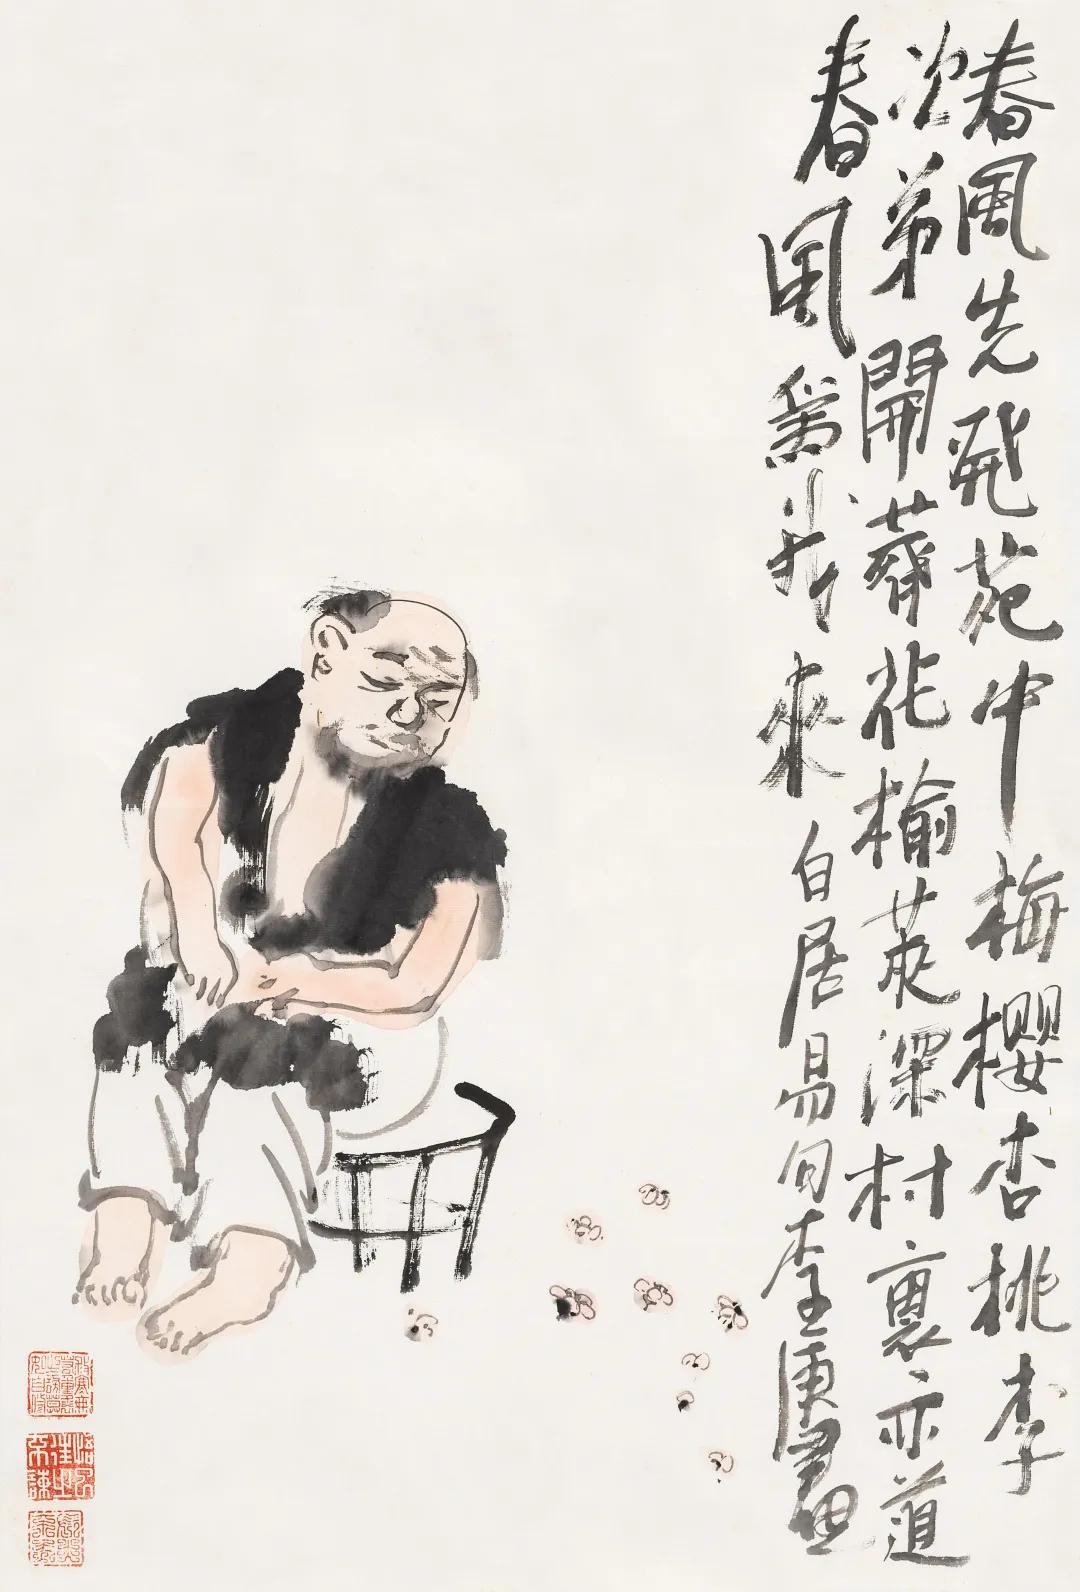 春風先發苑中梅櫻杏桃李
次第開薺花榆莢深村裏亦道
春風為我來 白居易句李庚畫